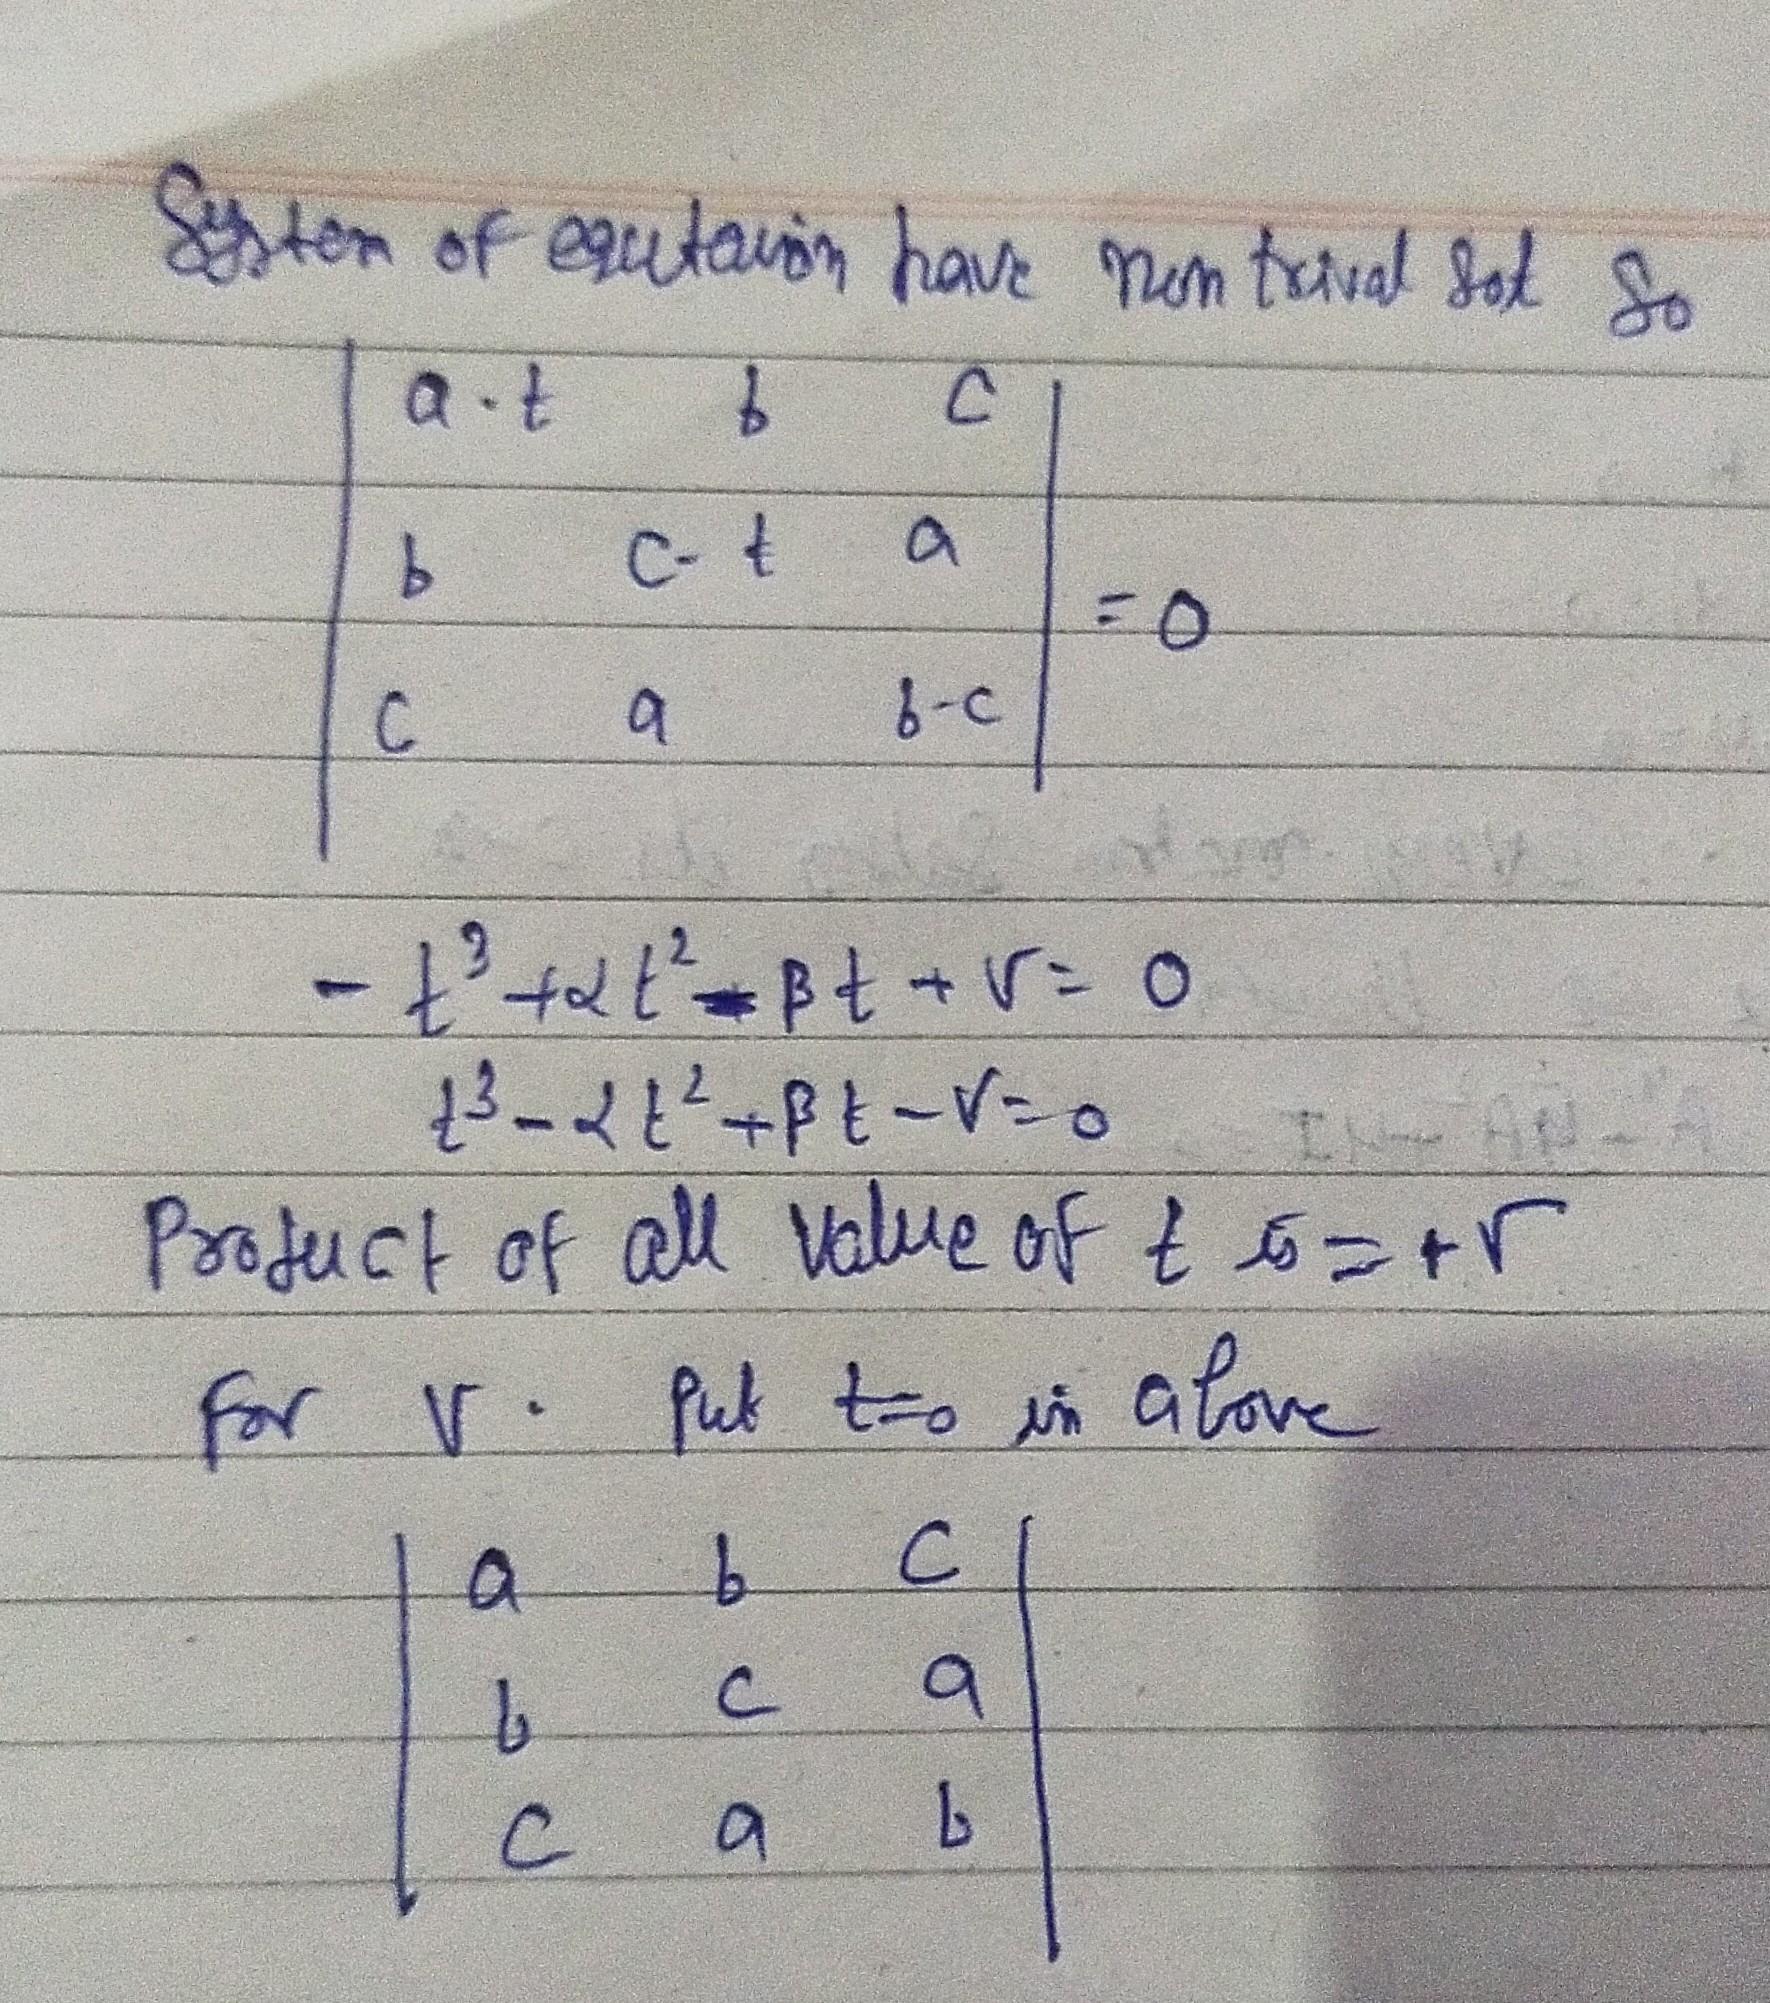 System of equtauion have non trival Sol So
| a-t b c |
| b c-t a | = 0
| c a b-c |
- t³ + αt² - βt + γ = 0
t³ - αt² + βt - γ = 0
Product of all value of t is = + γ
for γ . Put t=0 in above
| a b c |
| b c a |
| c a b |